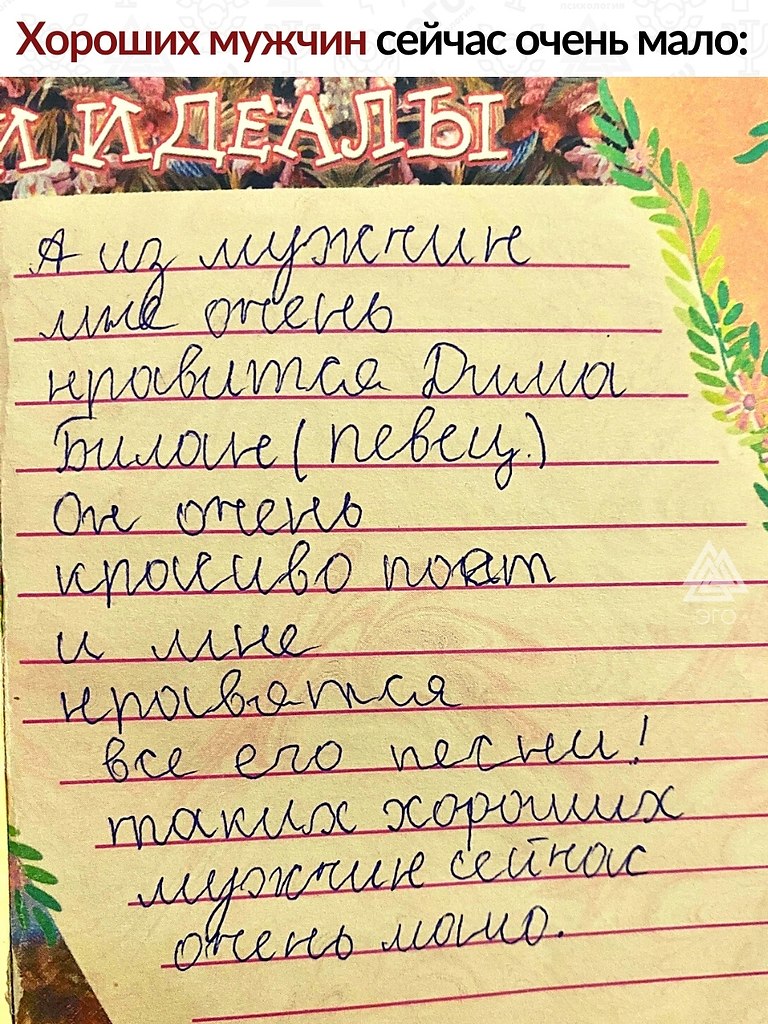 Хороших мужчин сейчас очень мало:
И ИДЕАЛЫ
А из мужчин
мне очень
нравится Дима
Билан (певец.)
Он очень
красиво поет
и мне
нравятся
все его песни!
таких хороших
мужчин сейчас
очень мало.
ЭГО